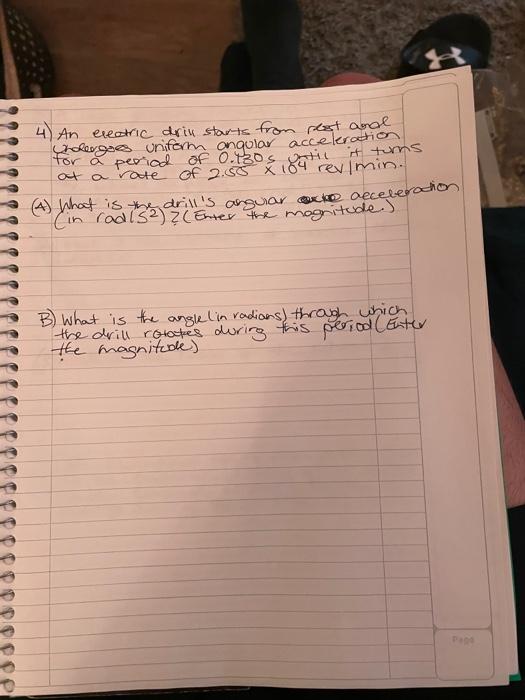 4) An electric drill starts from rest and
undergoes uniform angular acceleration
for a period of 0.430s until it turns
at a rate of 2.55 x 104 rev/min.
(A) What is the drill's angular acceleration
(in rad/s2)? (Enter the magnitude.)
B) What is the angle (in radians) through which
the drill rotates during this period (Enter
the magnitude)
Page